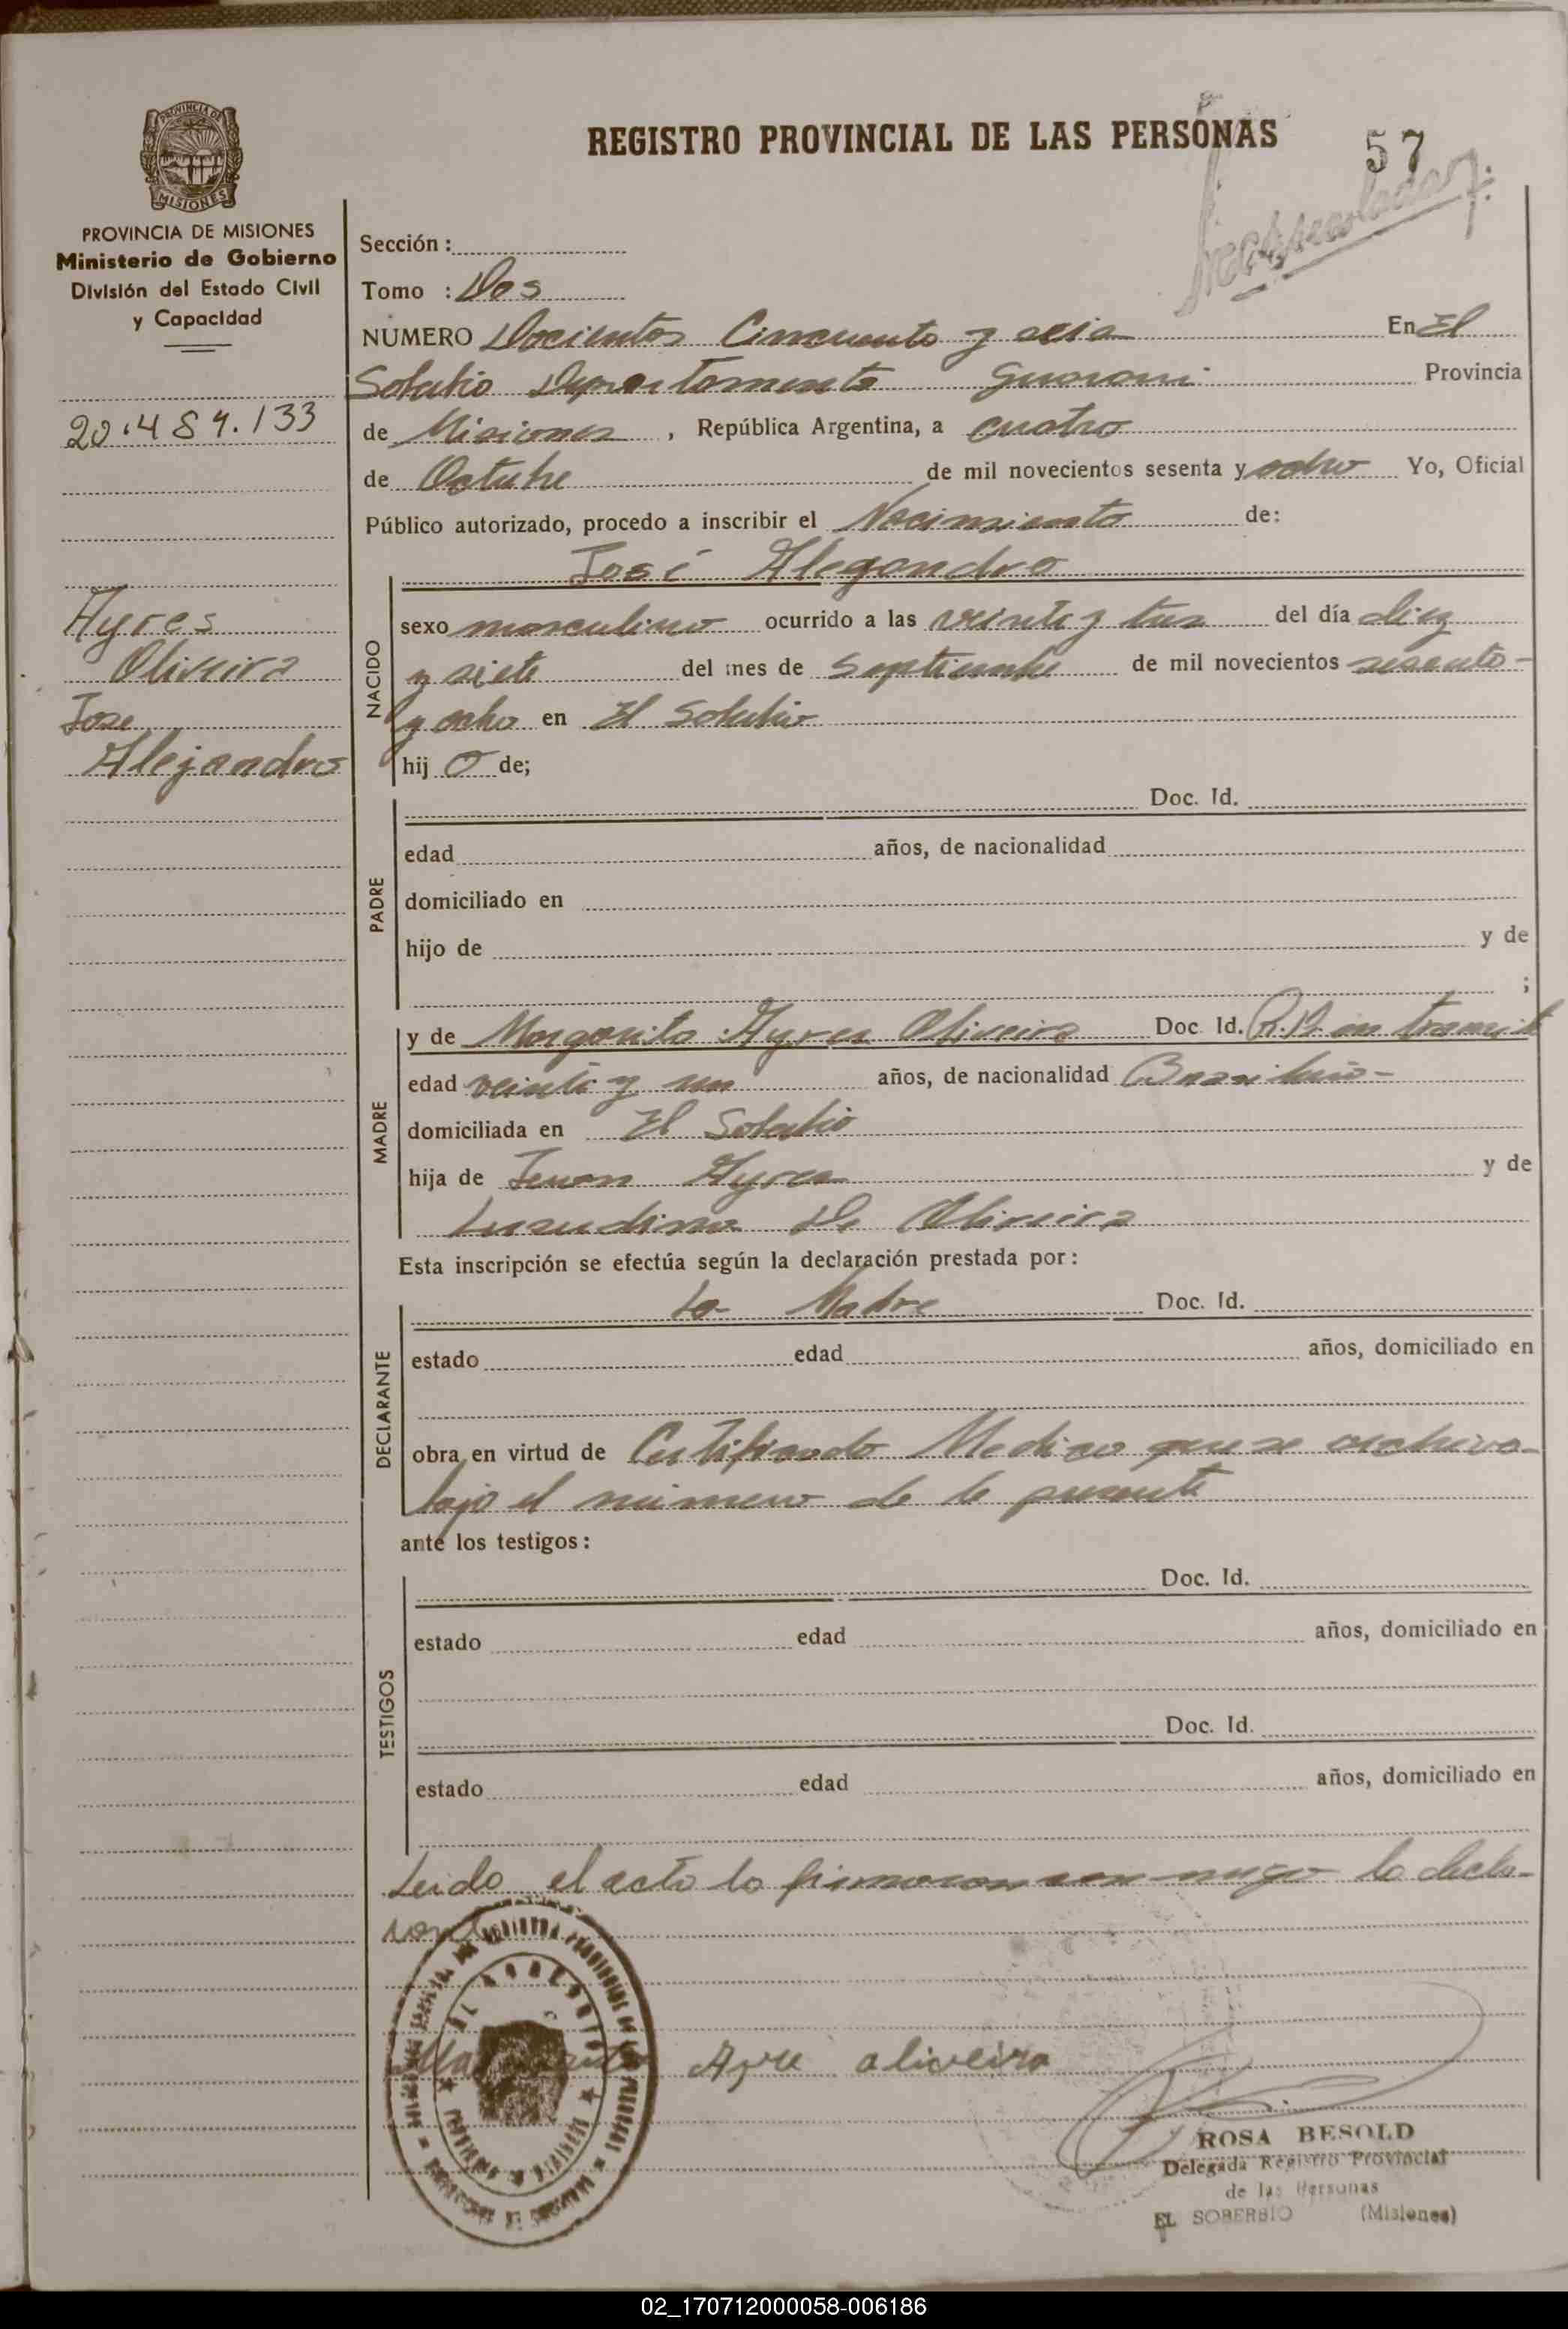 REGISTRO PROVINCIAL DE LAS PERSONAS
57
PROVINCIA DE
MISIONES
PROVINCIA DE MISIONES
Ministerio de Gobierno
División del Estado Civil
y Capacidad
Sección :
Tomo : Dos
NUMERO Docientos Cincuenta y seis En El
Soberbio Departamento Guarani Provincia
20.484.133
de Misiones , República Argentina, a cuatro
de Octubre de mil novecientos sesenta y ocho Yo, Oficial
Público autorizado, procedo a inscribir el Nacimiento de:
José Alegandro
Ayres
Oliveira
Jose
Alejandro
NACIDO
sexo masculino ocurrido a las veinte y tres del día diez
y siete del mes de Septiembre de mil novecientos sesenta-
y ocho en El Soberbio
hij o de;
PADRE
Doc. Id.
edad años, de nacionalidad
domiciliado en
hijo de y de
;
MADRE
y de Margarita Ayres Oliveira Doc Id. en tramite
edad veinte y un años, de nacionalidad Brasileña-
domiciliada en El Soberbio
hija de Juan Ayres y de
de Oliveira
Esta inscripción se efectúa según la declaración prestada por:
DECLARANTE
La Madre Doc. Id.
estado edad años, domiciliado en
obra en virtud de Certificado Medico que se archiva-
bajo el número de la presente
ante los testigos:
TESTIGOS
Doc. Id.
estado edad años, domiciliado en
Doc. Id.
estado edad años, domiciliado en
Leido el acto lo firmaron con migo la decla-
rante
Margarita Ayre oliveira
ROSA BESOLD
Delegada Registro Provincial
de las Personas
EL SOBERBIO (Misiones)
02_170712000058-006186